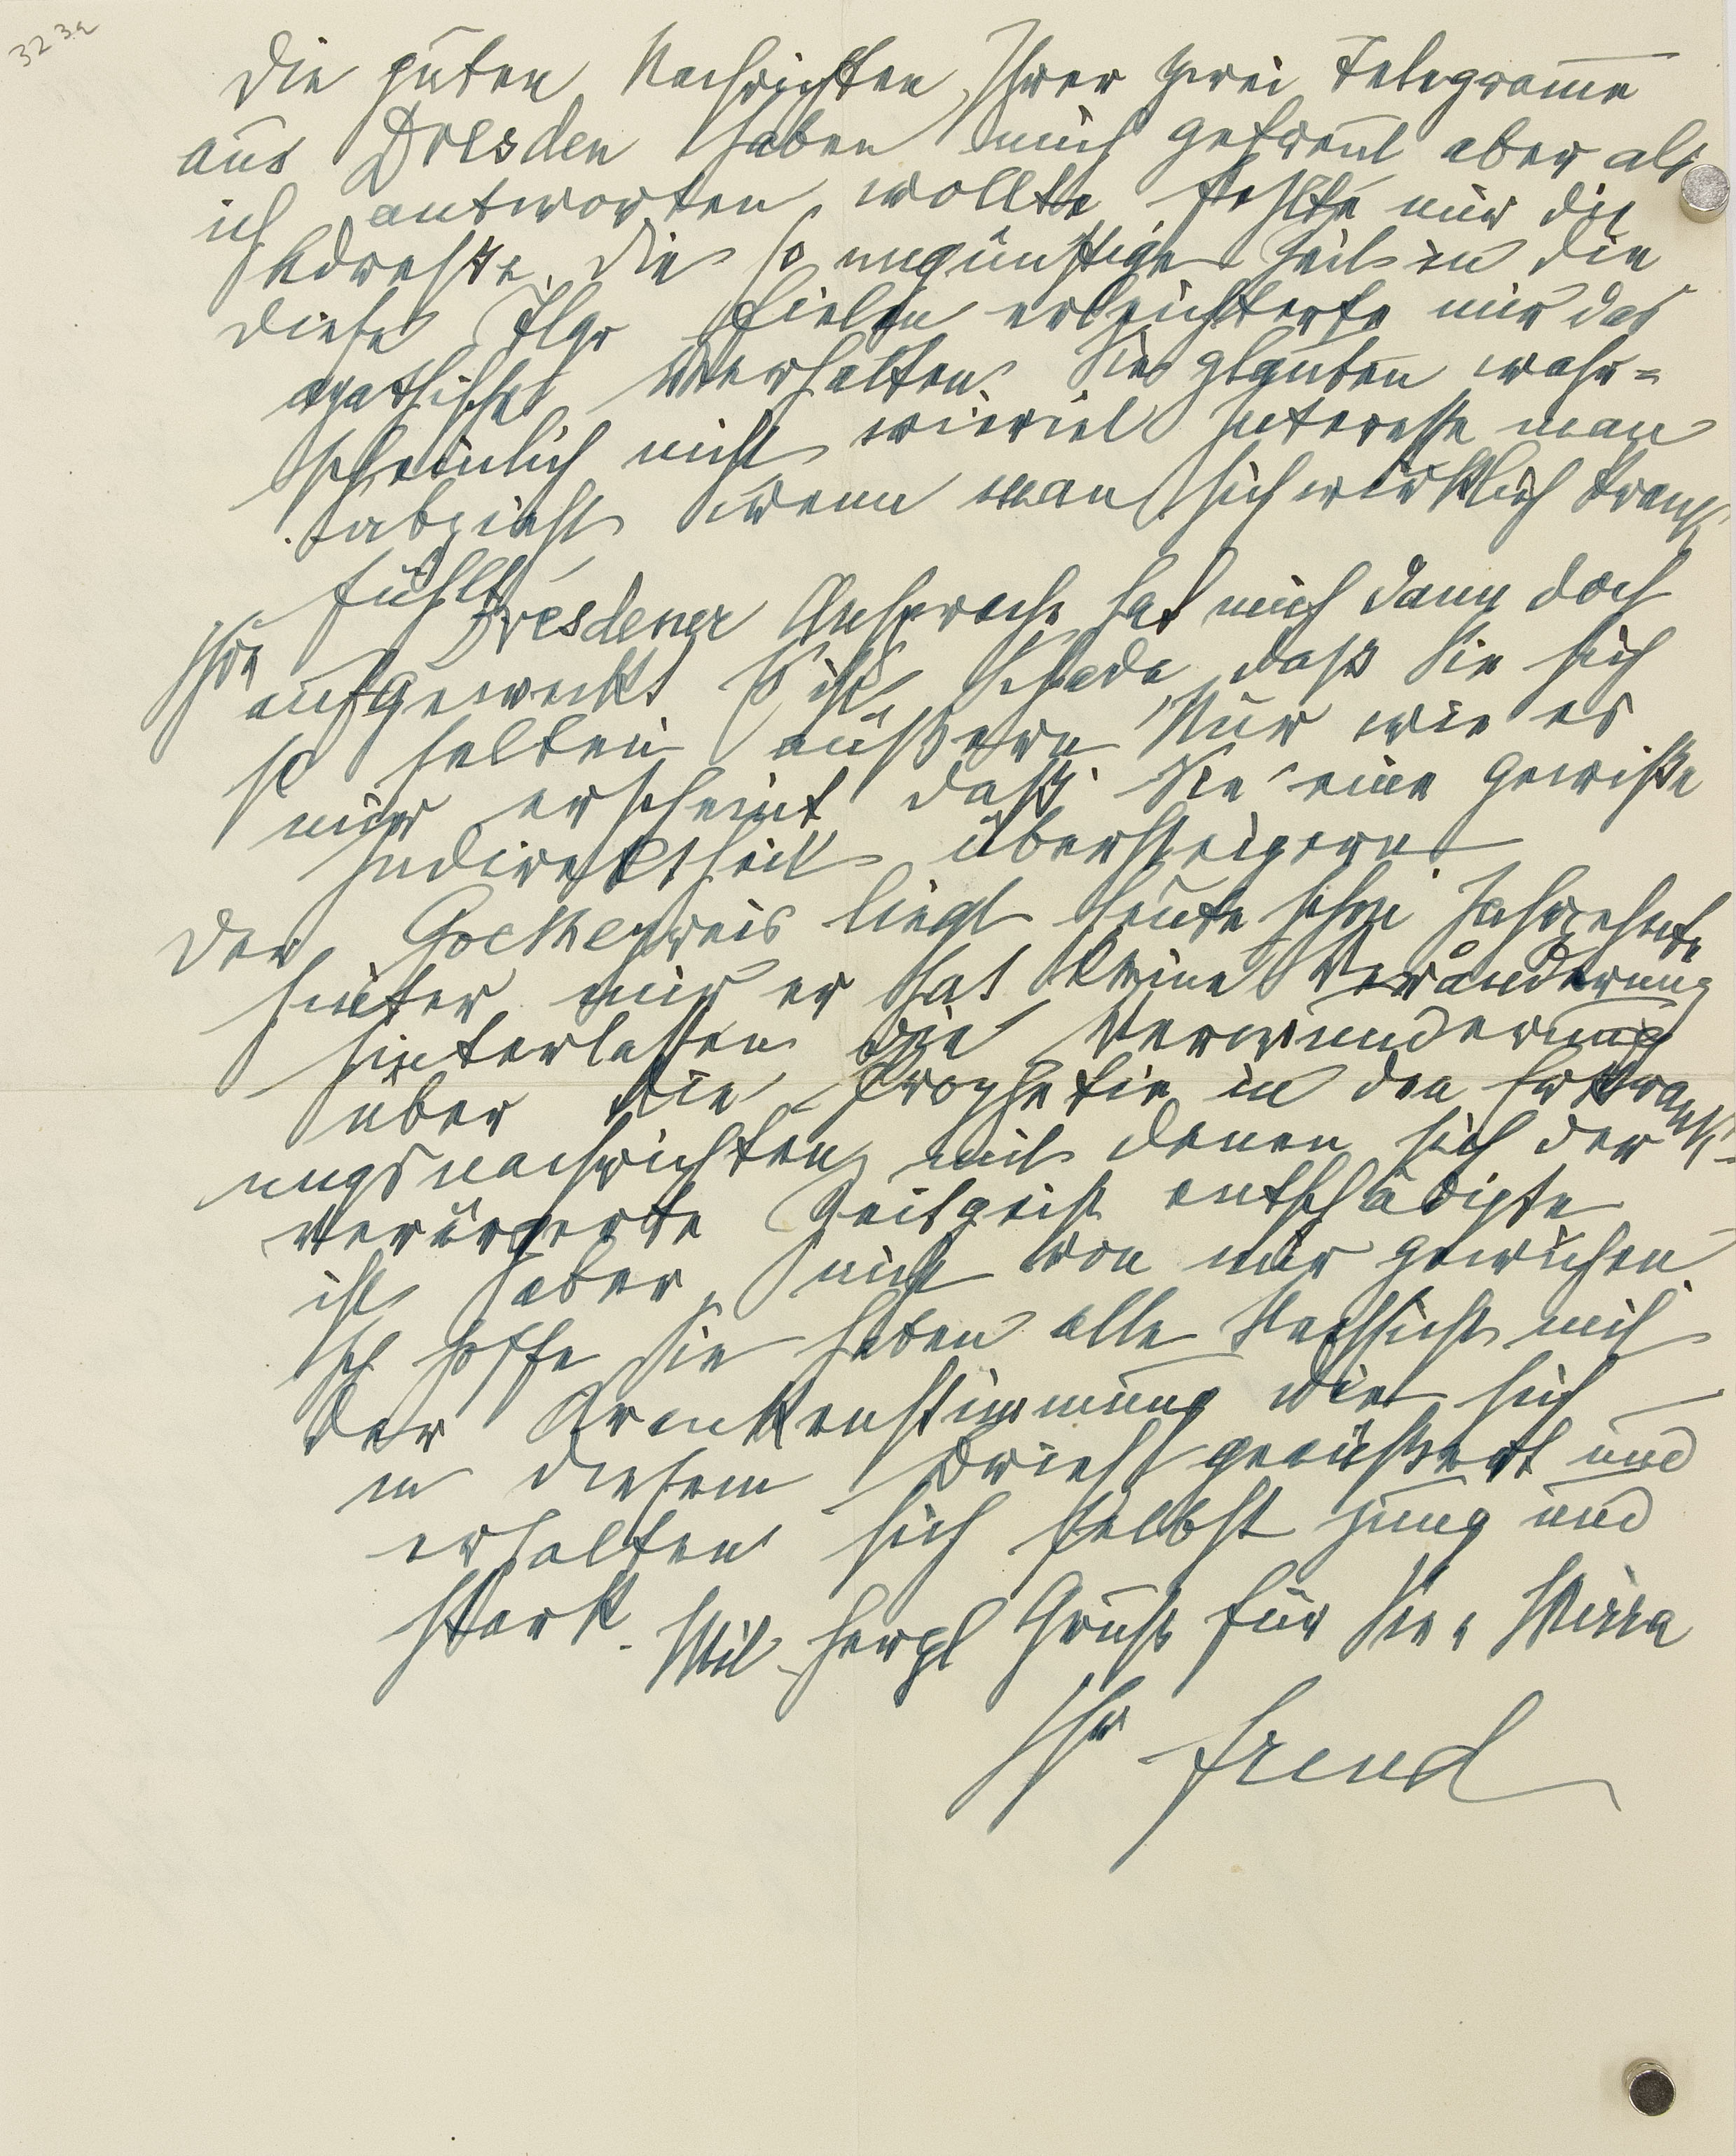 323a
Die guten Nachrichten Ihrer zwei Telegram̅e
aus Dresden haben mich gefreut aber als
ich antworten wollte fehlte mir die
Adresse. Die so ungünstige Zeit in die
diese Tlgr fielen erleichterte mir das
apathische Verhalten. Sie glauben wahr=
scheinlich nicht wieviel Interesse man
abzieht wenn man sich wirklich krank
fühlt.
Ihre Dresdener Ansprache hat mich dann doch
aufgeweckt. Es ist Schade daß Sie sich
so selten äußern. Nur wie es
mir erscheint daß Sie eine gewisse
Indirektheit übersteigern.
Der Goethepreis liegt heute schon Jahrzehnte
hinter mir er hat keine Veränderung
hinterlassen die Verwunderung
über die Prophetie in den Erkrank-
ungsnachrichten mit denen sich der
verärgerte Zeitgeist entschädigte
ist aber nicht von mir gewichen.
Ich hoffe Sie haben alle Nachsicht mit
der Krankenstimmung die sich
in diesem Brief geäußert und
erhalten sich selbst jung und
stark. Mit herzl Gruß für Sie u Mirra
Ihr Freud